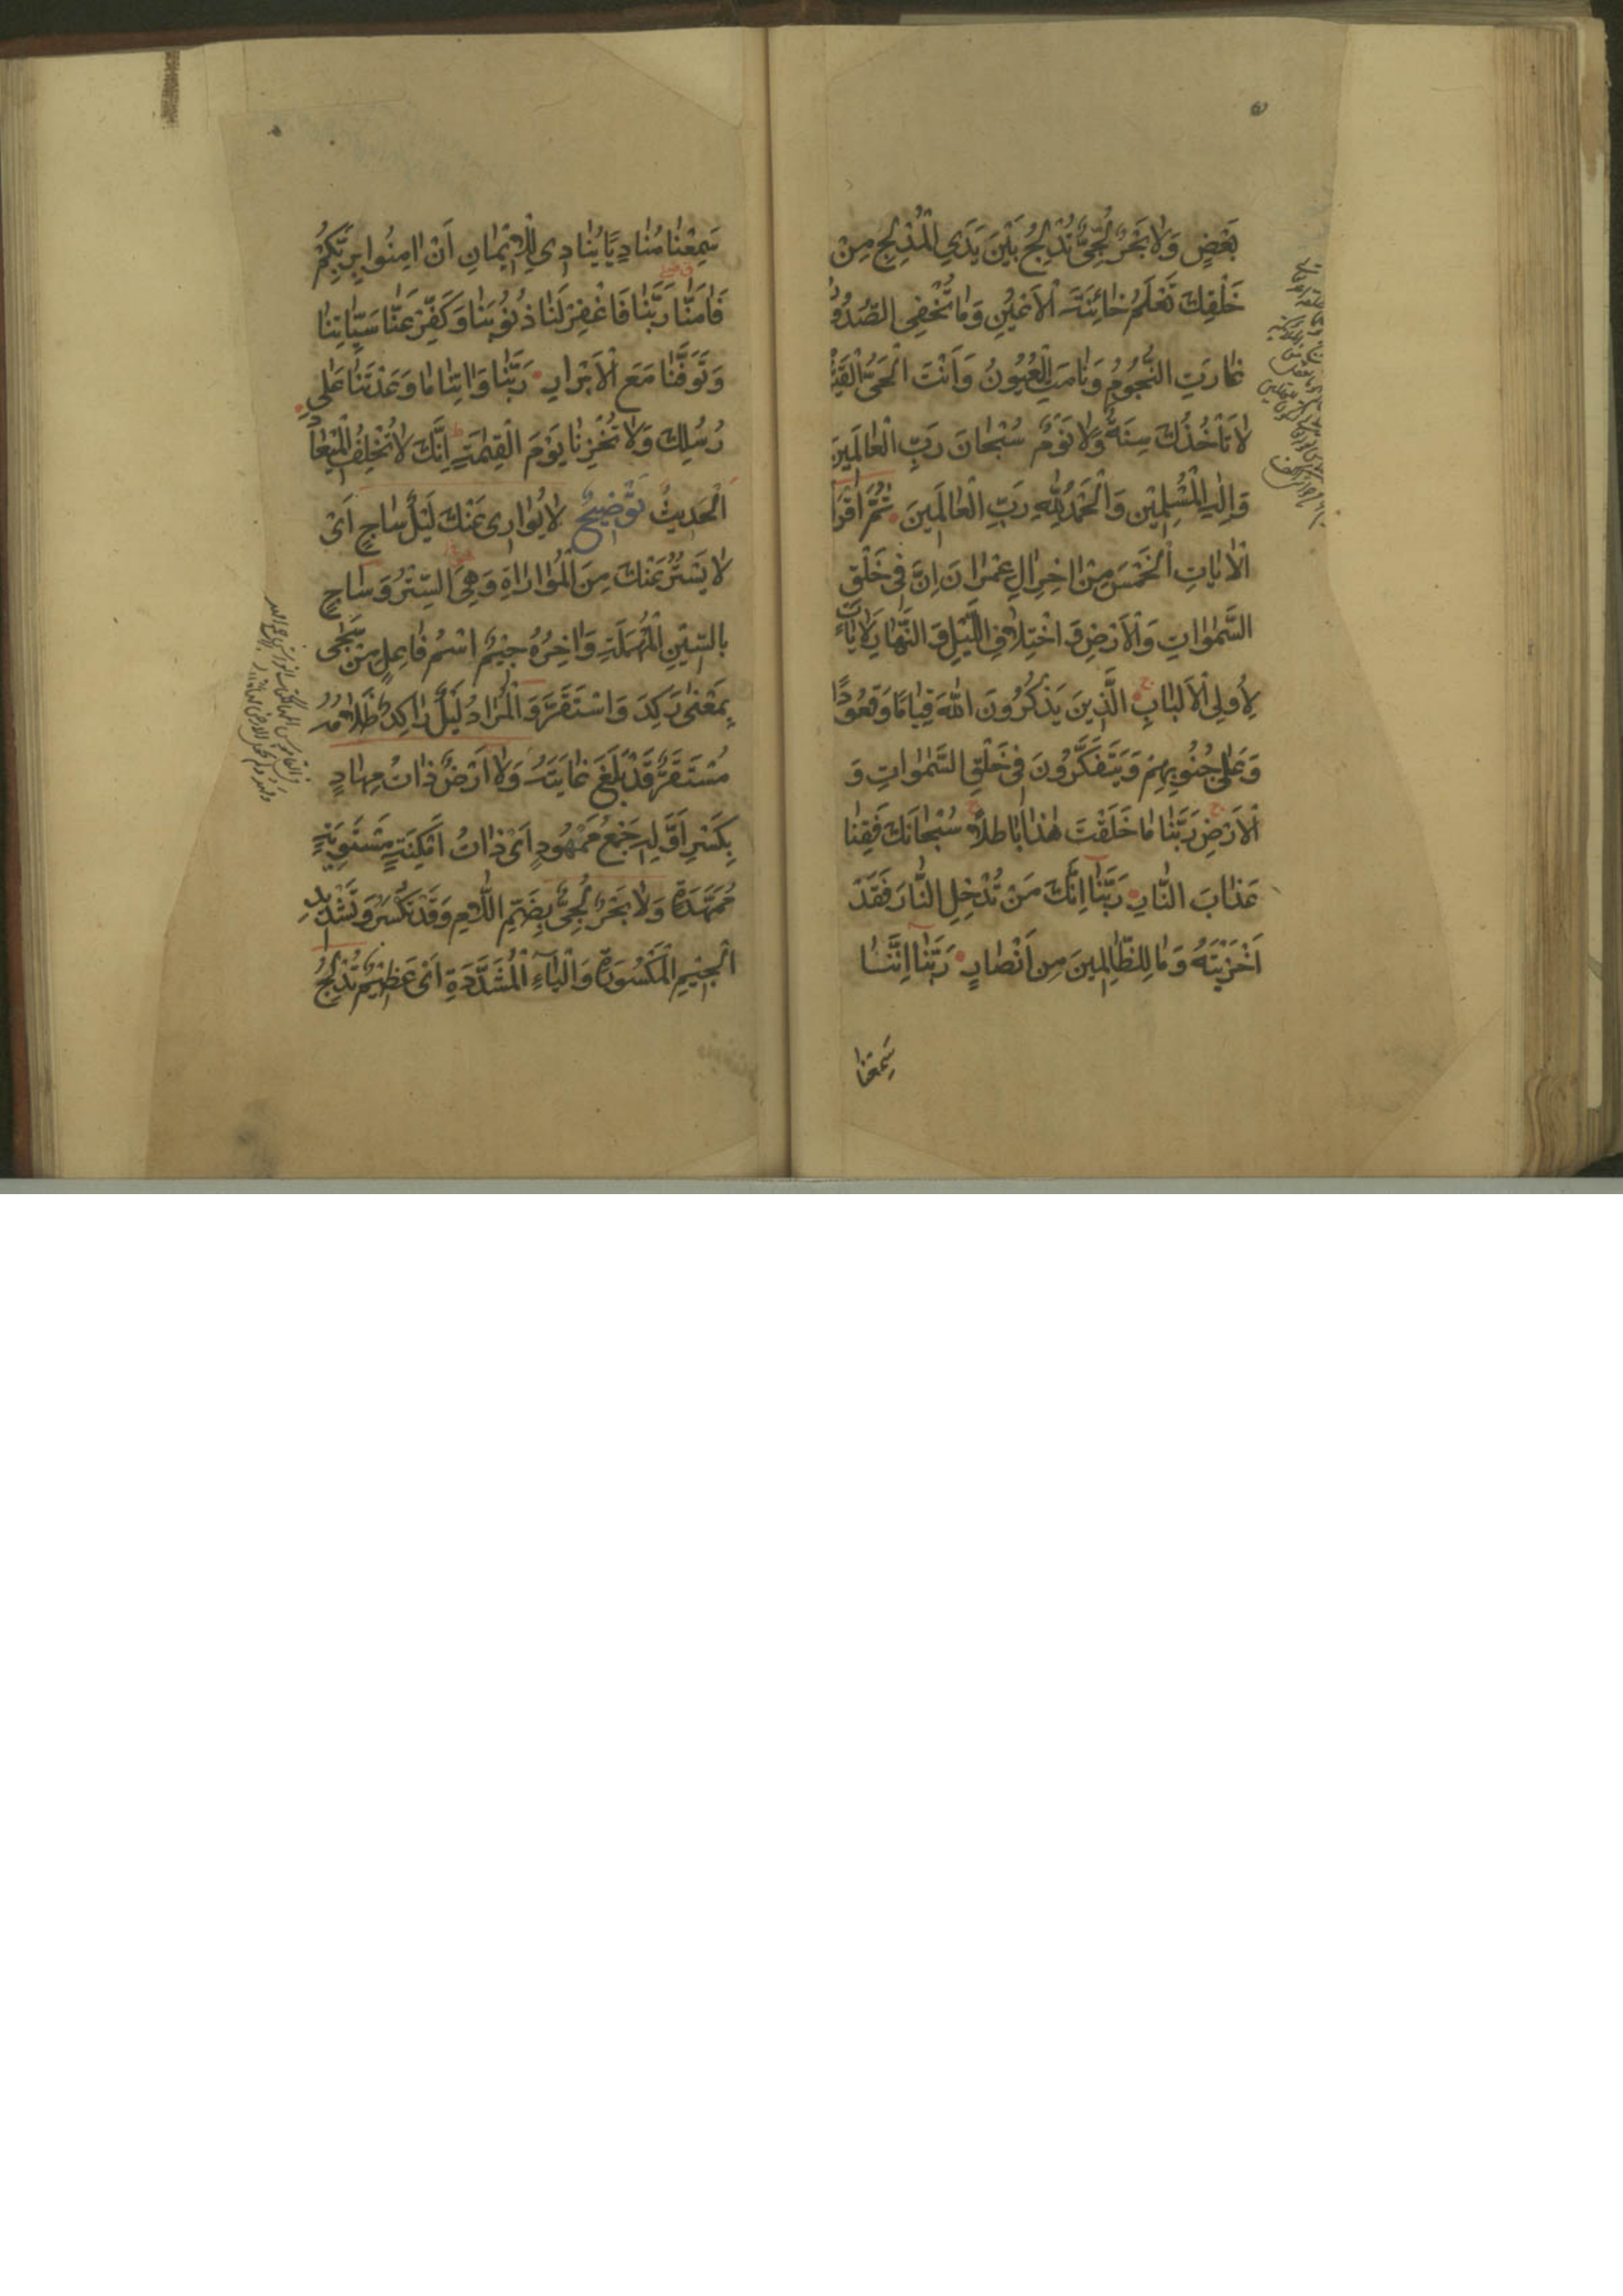 بَعْضٍ وَلَا بَحْرٌ لُجِّيٌّ تُدْلِجُ بَيْنَ يَدَيِ الْمُدْلِجِ مِنْ
خَلْقِكَ تَعْلَمُ خَائِنَةَ الْأَعْيُنِ وَمَا تُخْفِي الصُّدُورُ
غَارَتِ النُّجُومُ وَنَامَتِ الْعُيُونُ وَأَنْتَ الْحَيُّ الْقَيُّومُ
لَا تَأْخُذُكَ سِنَةٌ وَلَا نَوْمٌ سُبْحَانَ رَبِّ الْعَالَمِينَ
وَإِلٰهِ الْمُسْلِمِيْنَ وَالْحَمْدُ لِلّٰهِ رَبِّ الْعَالَمِينَ ثُمَّ اقْرَأْ
الْآيَاتِ الْخَمْسَ مِنْ اٰخِرِ اٰلِ عِمْرَانَ اِنَّ فِي خَلْقِ
السَّمٰوَاتِ وَالْأَرْضِ وَاخْتِلَافِ اللَّيْلِ وَالنَّهَارِ لَاٰيَاتٍ
لِأُولِي الْأَلْبَابِ الَّذِينَ يَذْكُرُونَ اللّٰهَ قِيَامًا وَقُعُودًا
وَعَلٰى جُنُوبِهِمْ وَيَتَفَكَّرُونَ فِي خَلْقِ السَّمٰوَاتِ وَ
الْأَرْضِ رَبَّنَا مَا خَلَقْتَ هٰذَا بَاطِلًا سُبْحَانَكَ فَقِنَا
عَذَابَ النَّارِ رَبَّنَا اِنَّكَ مَنْ تُدْخِلِ النَّارَ فَقَدْ
اَخْزَيْتَهُ وَمَا لِلظَّالِمِينَ مِنْ اَنْصَارٍ رَبَّنَا اِنَّنَا
سَمِعْنَا
سَمِعْنَا مُنَادِيًا يُنَادِي لِلْاِيْمَانِ اَنْ اٰمِنُوا بِرَبِّكُمْ
فَاٰمَنَّا رَبَّنَا فَاغْفِرْ لَنَا ذُنُوْبَنَا وَكَفِّرْ عَنَّا سَيِّاٰتِنَا
وَتَوَفَّنَا مَعَ الْاَبْرَارِ رَبَّنَا وَاٰتِنَا مَا وَعَدْتَنَا عَلٰى
رُسُلِكَ وَلَا تُخْزِنَا يَوْمَ الْقِيٰمَةِ اِنَّكَ لَا تُخْلِفُ الْمِيْعَادَ
الْحَدِيثُ تَوْضِيحٌ لَا يُوَارِي عَنْكَ لَيْلٌ سَاجٍ اَيْ
لَا يَسْتُرُ عَنْكَ مِنَ الْمُوَارَاةِ وَهِيَ السَّتْرُ وَسَاجٍ
بِالسِّيْنِ الْمُهْمَلَةِ وَاٰخِرُهُ جِيْمٌ اسْمُ فَاعِلٍ مِنْ سَجٰى
بِمَعْنٰى رَكَدَ وَاسْتَقَرَّ وَالْمُرَادُ لَيْلٌ رَاكِدٌ ظَلَامُهُ
مُسْتَقِرٌّ قَدْ بَلَغَ غَايَتَهُ وَلَا اَرْضٌ ذَاتُ مِهَادٍ
بِكَسْرِ اَوَّلِهِ جَمْعُ مَمْهُودٍ اَيْ ذَاتُ اَمْكِنَةٍ مُسْتَوِيَةٍ
مُمَهَّدَةٍ وَلَا بَحْرٌ لُجِّيٌّ بِضَمِّ اللَّامِ وَقَدْ تُكْسَرُ وَتَشْدِيْدِ
الْجِيْمِ الْمَكْسُورَةِ وَالْيَاءِ الْمُشَدَّدَةِ اَيْ عَظِيْمٌ تُدْلِجُ